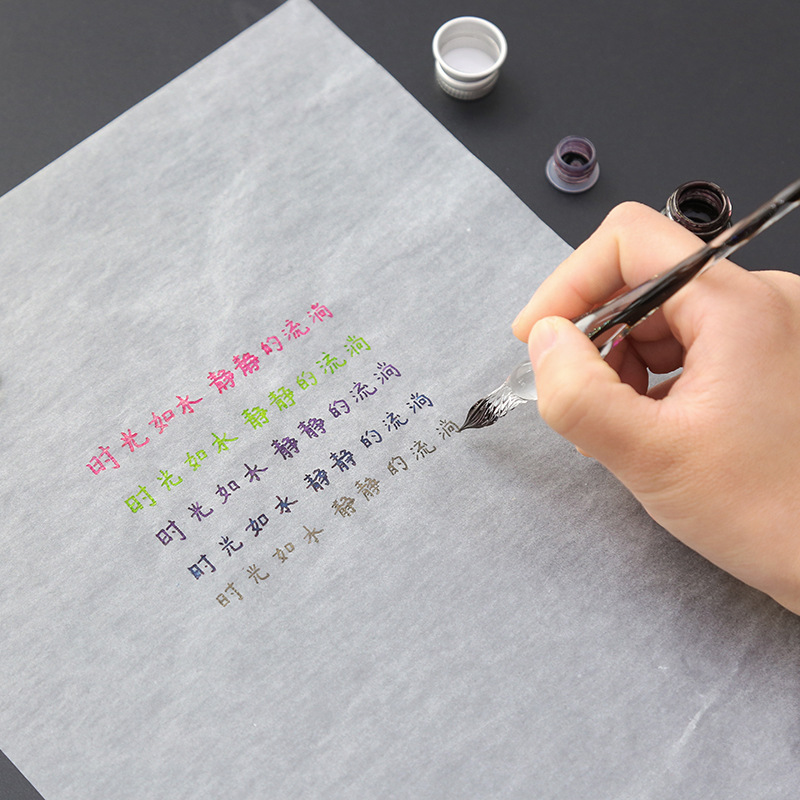 时光如水 静静的流淌
时光如水 静静的流淌
时光如水 静静的流淌
时光如水 静静的流淌
时光如水 静静的流淌